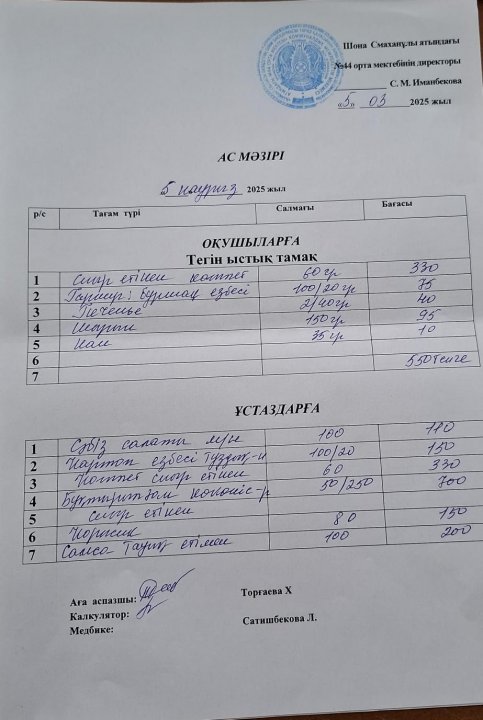 Шона Смаханұлы атындағы
№44 орта мектебінің директоры
С. М. Иманбекова
«5» 03 2025 жыл
АС МӘЗІРІ
5 наурыз 2025 жыл
р/с Тағам түрі Салмағы Бағасы
ОҚУШЫЛАРҒА
Тегін ыстық тамақ
1 Сиыр етінен котлет 60 гр 330
2 Гарнир: Бұршақ езбесі 100/20 гр 75
3 Печенье 2/40гр 40
4 150 гр 95
5 Нан 35 гр 10
6 550 теңге
7
ҰСТАЗДАРҒА
1 Сәбіз салаты 100
2 Картоп езбесі тұздық 100/20 150
3 Котлет сиыр етінен 60 330
4 50/250 700
5 сиыр етінен
6 80 150
7 Самса Тауық етімен 100 200
Аға аспазшы: Торғаева Х
Калкулятор:
Медбике: Сатишбекова Л.